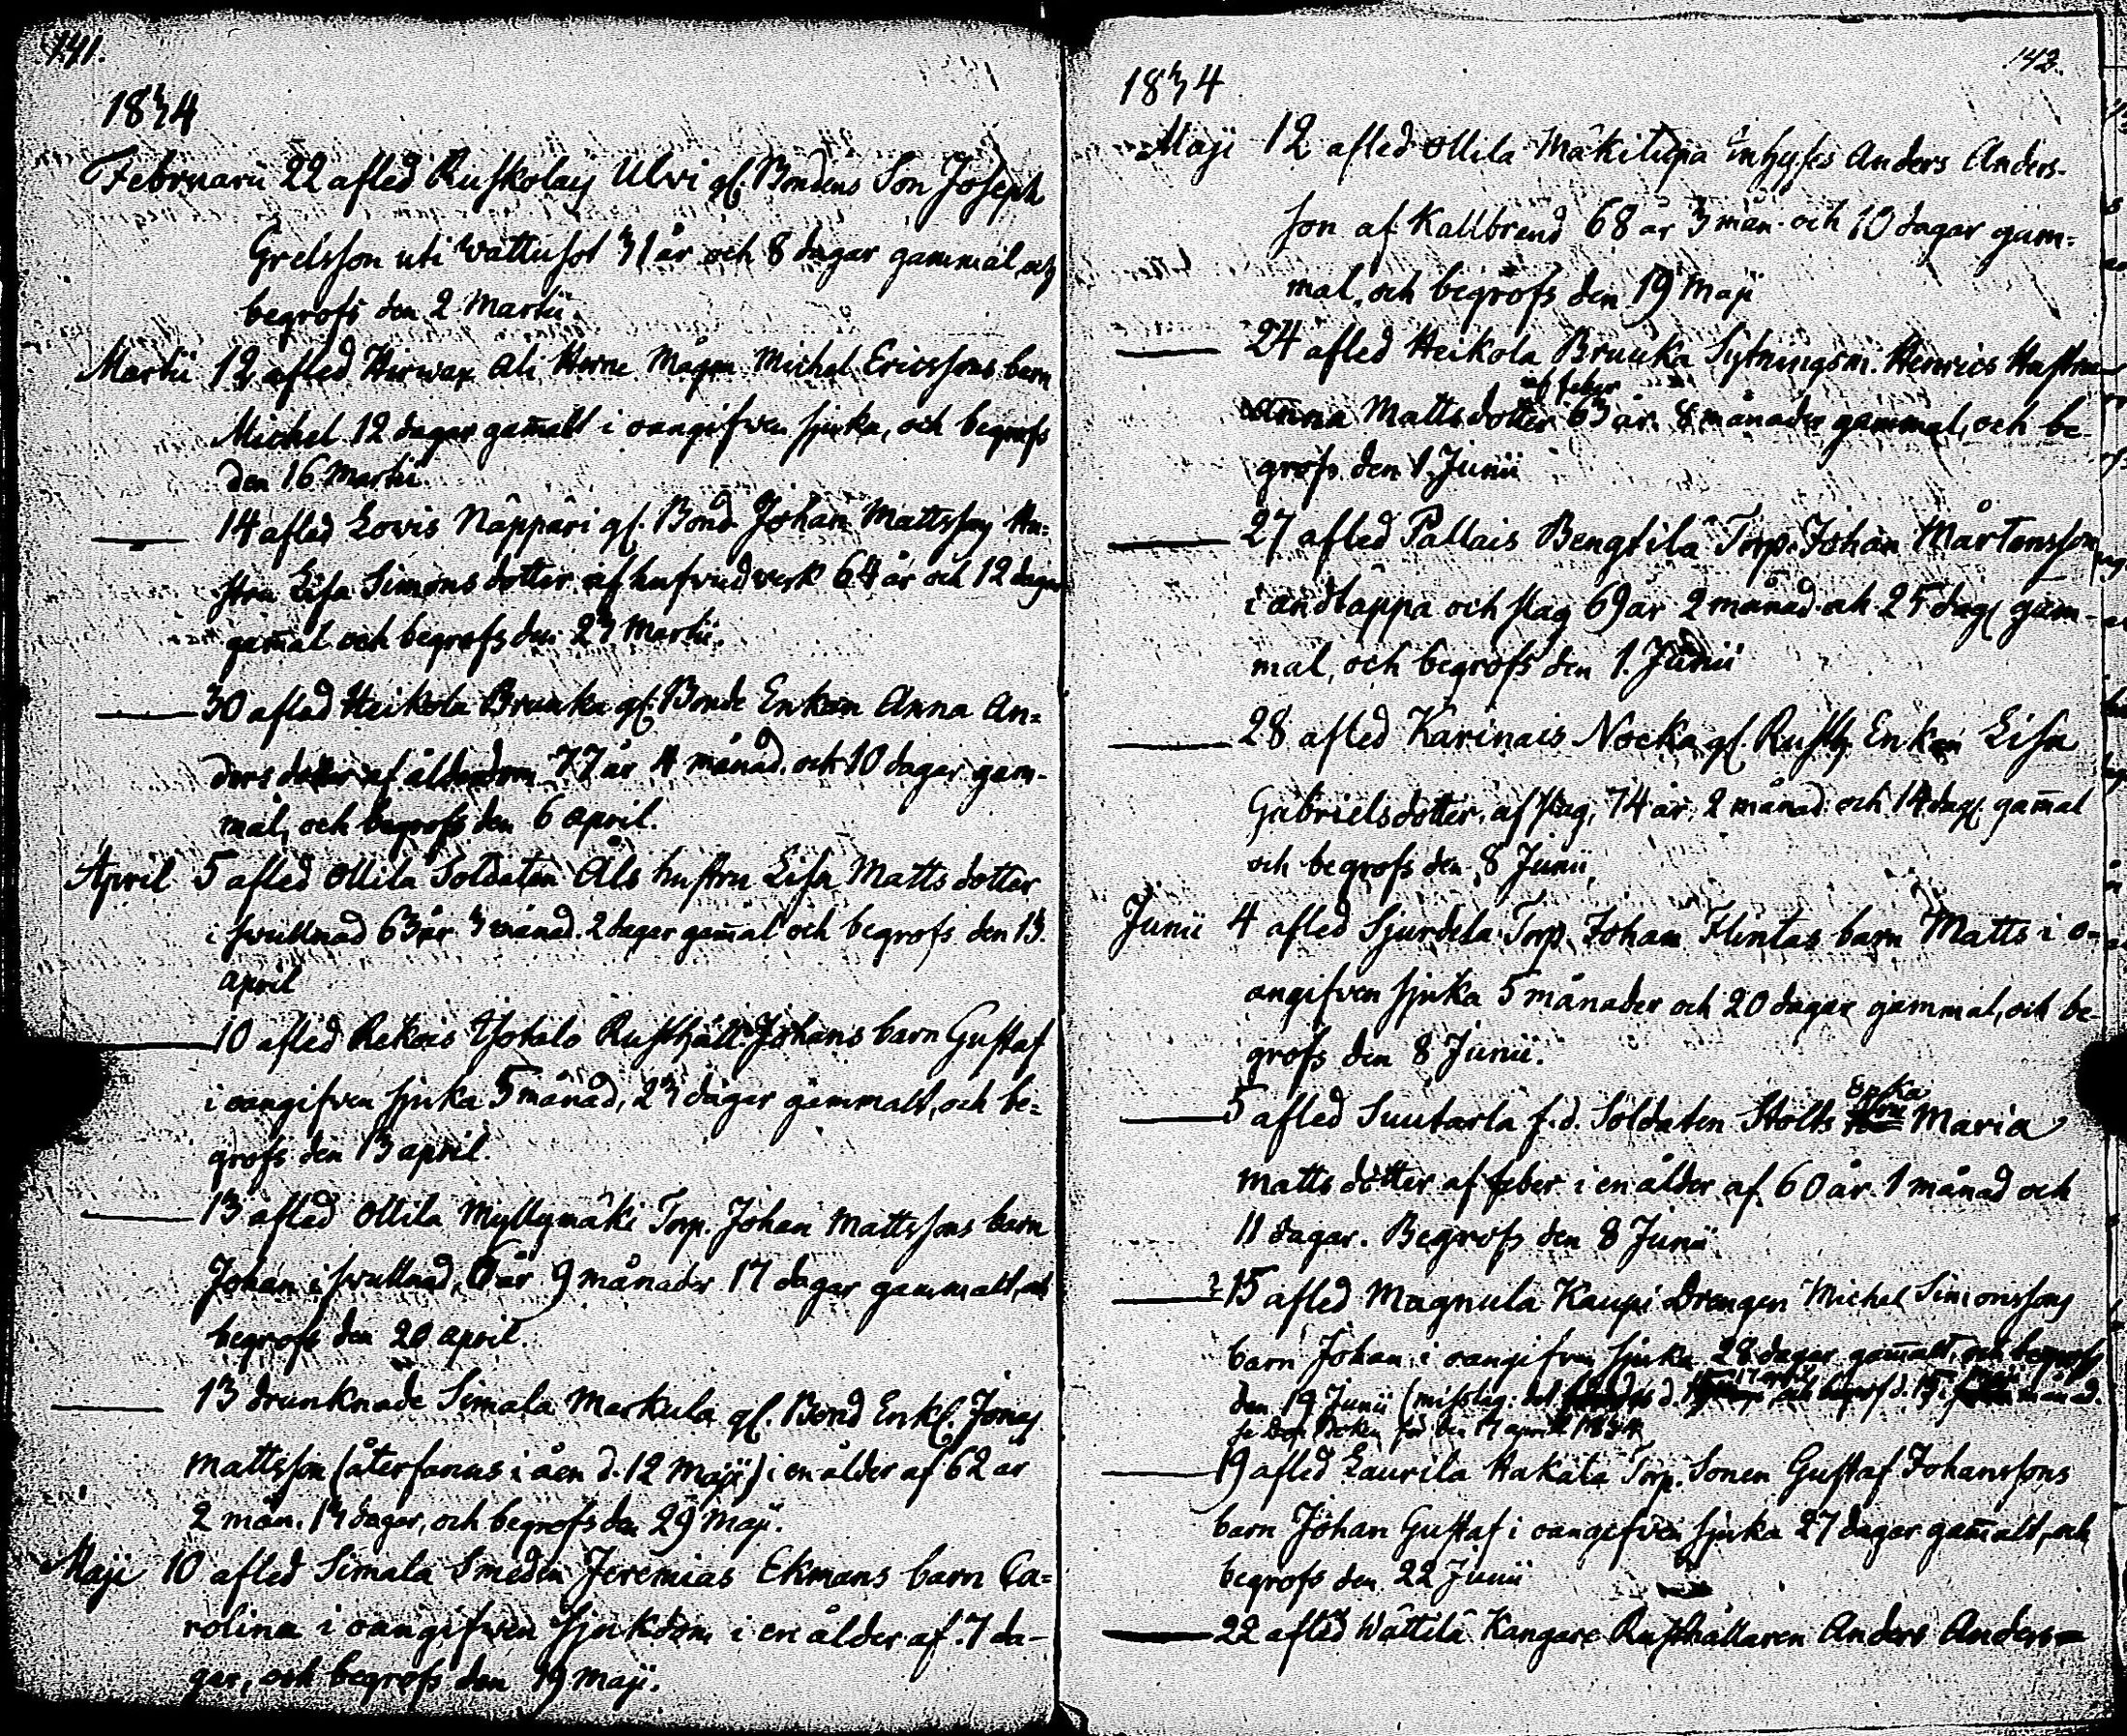 141.
1834
Februarii 22 afled Ruskolax Ulvi gl. Bondens Son Joseph
Grelsson uti wattusot 31 år och 8 dagar gammal, och
begrofs den 2 Martii.
Martii 12 afled Hirwax Ali Herne Mågen Michel Ericssons barn
Michel 12 dagar gam̄alt i oangifwen sjuka, och begrofs
den 16 Martii.
14 afled Lovis Näppäri gl. Bond. Johan Mattssons Hu-
stru Lisa Simons dotter af hufvudverk 64 år och 12 dagar
gam̄al och begrofs den 23 Martii.
30 afled Heikola Bruuka gl. Bonde Enkan Anna An-
ders dotter af ålderdom 77 år 4 månad. och 10 dagar gam-
mal, och begrofs den 6 april.
April 5 afled Ollila Soldaten Åls hustru Lisa Matts dotter
i swullnad 63 år 3 månad. 2 dagar gam̄al och begrofs den 13.
april
10 afled Rekois Ysotalo Rusthåll. Johans barn Gustaf
i oangifven sjuka 5 månad, 23 dagar gammalt, och be-
grofs den 13 april.
13 afled Ollila Myllymäki Torp. Johan Mattssons barn
Johan i swullnad, 6 år 9 månader 17 dagar gammalt, och
begrofs den 20 april.
13 drunknade Simala Markula gl. Bond Enkl. Jonas
Mattsson (återfanns i åen d. 12 Maji) i en ålder af 62 år
2 mån. 13 dagar, och begrofs den 29 Maji.
Maji 10 afled Simala Smeden Jeremias Ekmans barn Ca-
rolina i oangifwen Sjukdom i en ålder af 7 da-
gar, och begrofs den 19 Maji.
142.
1834
Maji 12 afled Ollila Mäkitupa Inhyses Anders Anders-
son af Kallbrand 68 år 3 mån. och 10 dagar gam-
mal, och begrofs den 19 Maji
24 afled Heikola Bruuka Sytningsm. Henrics Hustru
af feber
Anna Mattsdotter 63 år 8 månader gammal, och be-
grofs den 1. Junii
27 afled Pallais Bengtilä Torp. Johan Mårtensson
i andtäppa och slag 69 år 2 månad. och 25 dag. gam-
mal, och begrofs den 1. Junii
28 afled Karinais Nocka gl. Rusth. Enkan Lisa
Gabrielsdotter, af slag, 74 år, 2 månad. och 14 dag. gam̄al
och begrofs den 8 Junii.
Junii 4 afled Sjurdela Torp. Johan Flintas barn Matts i o-
angifven sjuka 5 månader och 20 dagar gammal, och be-
grofs den 8 Junii.
Enka
5 afled Suutarla f.d. Soldaten Stolts Maria
Matts dotter af feber i en ålder af 60 år 1 månad och
11 dagar. Begrofs den 8 Junii.
15 afled Magnula Kaupi Drengen Michel Simonssons
barn Johan i oangifven sjuka 28 dagar gam̄alt, och begrofs
den 19 Junii (misstag: det
se Död Boken för den 17 april 1834
19 afled Laurila Kakata Torp. Sonen Gustaf Johanssons
barn Johan Gustaf i oangifven sjuka 27 dagar gam̄alt, och
begrofs den 22 Junii
22 afled Wättilä Kangare Rusthållaren Anders Anders-